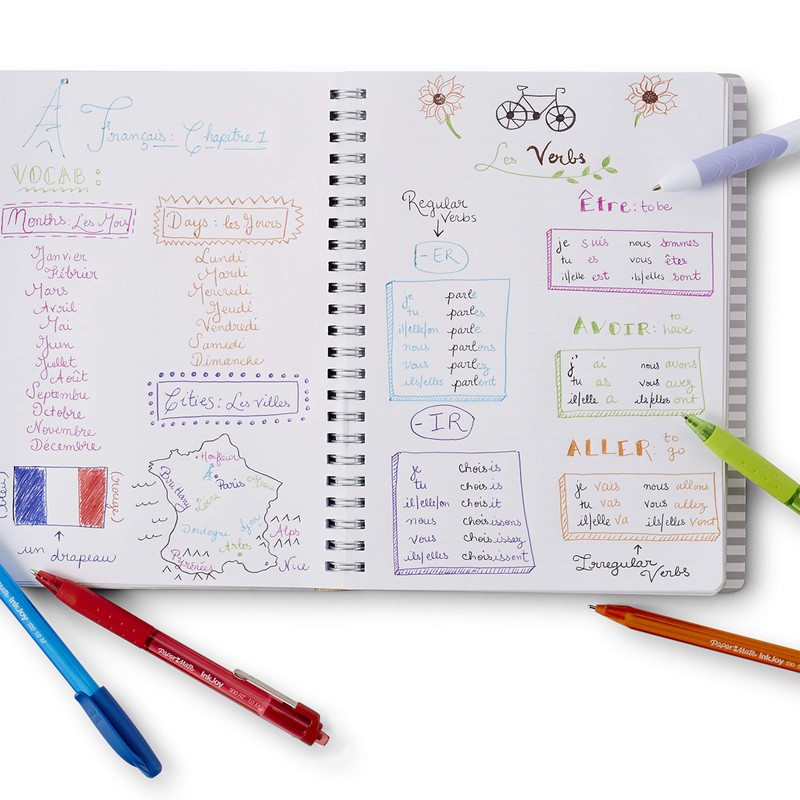 Français: Chapitre 1
VOCAB:
Months: Les Mois
Janvier
Février
Mars
Avril
Mai
Juin
Juillet
Août
Septembre
Octobre
Novembre
Décembre
Days: les Jours
Lundi
Mardi
Mercredi
Jeudi
Vendredi
Samedi
Dimanche
Cities: Les Villes
(bleu)
(rouge)
un drapeau
Honfleur
Brittany
Paris
Alsace
Loire
Dordogne
Lyon
Arles
Alps
Pyrénées
Nice
Les Verbs
Regular
Verbs
-ER
je parle
tu parles
il/elle/on parle
nous parlons
vous parlez
ils/elles parlent
-IR
je choisis
tu choisis
il/elle/on choisit
nous choisissons
vous choisissez
ils/elles choisissent
Être: to be
je suis nous sommes
tu es vous êtes
il/elle est ils/elles sont
AVOIR: to have
j' ai nous avons
tu as vous avez
il/elle a ils/elles ont
ALLER: to go
je vais nous allons
tu vas vous allez
il/elle va ils/elles vont
Irregular
Verbs
Paper Mate InkJoy 100 1.0 M
Paper Mate InkJoy 300 RT 1.0 M
Paper Mate InkJoy 100